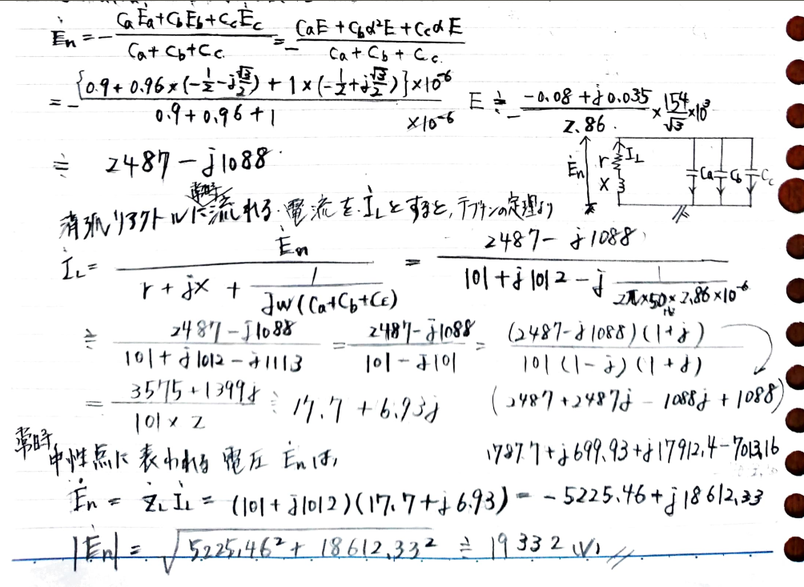 Ėn = - (CaĖa + CbĖb + CcĖc) / (Ca + Cb + Cc) = - (CaE + Cbα²E + CcαE) / (Ca + Cb + Cc)
= - {0.9 + 0.96 × (-1/2 - j√3/2) + 1 × (-1/2 + j√3/2)} × 10⁻⁶ / (0.9 + 0.96 + 1) × 10⁻⁶ E ≒ - (-0.08 + j0.035) / 2.86 × 154/√3 × 10³
≒ 2487 - j1088
Ėn r IL X Ca Cb Cc
消弧リアクトルに常時流れる電流をİLとすると, テブナンの定理より
İL = Ėn / (r + jX + 1/(jw(Ca + Cb + Cc))) = (2487 - j1088) / (101 + j1012 - j 1/(2π×50×2.86×10⁻⁶))
≒ (2487 - j1088) / (101 + j1012 - j1113) = (2487 - j1088) / (101 - j101) = (2487 - j1088)(1 + j) / 101(1 - j)(1 + j)
= (3575 + 1399j) / (101 × 2) ≒ 17.7 + 6.93j (2487 + 2487j - 1088j + 1088)
常時中性点に表われる電圧Ėnは, 1787.7 + j699.93 + j17912.4 - 7013.16
Ėn = ŻLİL = (101 + j1012)(17.7 + j6.93) = -5225.46 + j18612.33
|Ėn| = √(5225.46² + 18612.33²) ≒ 19332 (V)